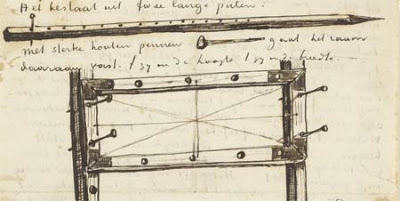 Het bestaat uit twee lange palen:
met sterke houten pennen gaat het raam
daaraan vast. 't zy in de hoogte 't zy in de breedte.